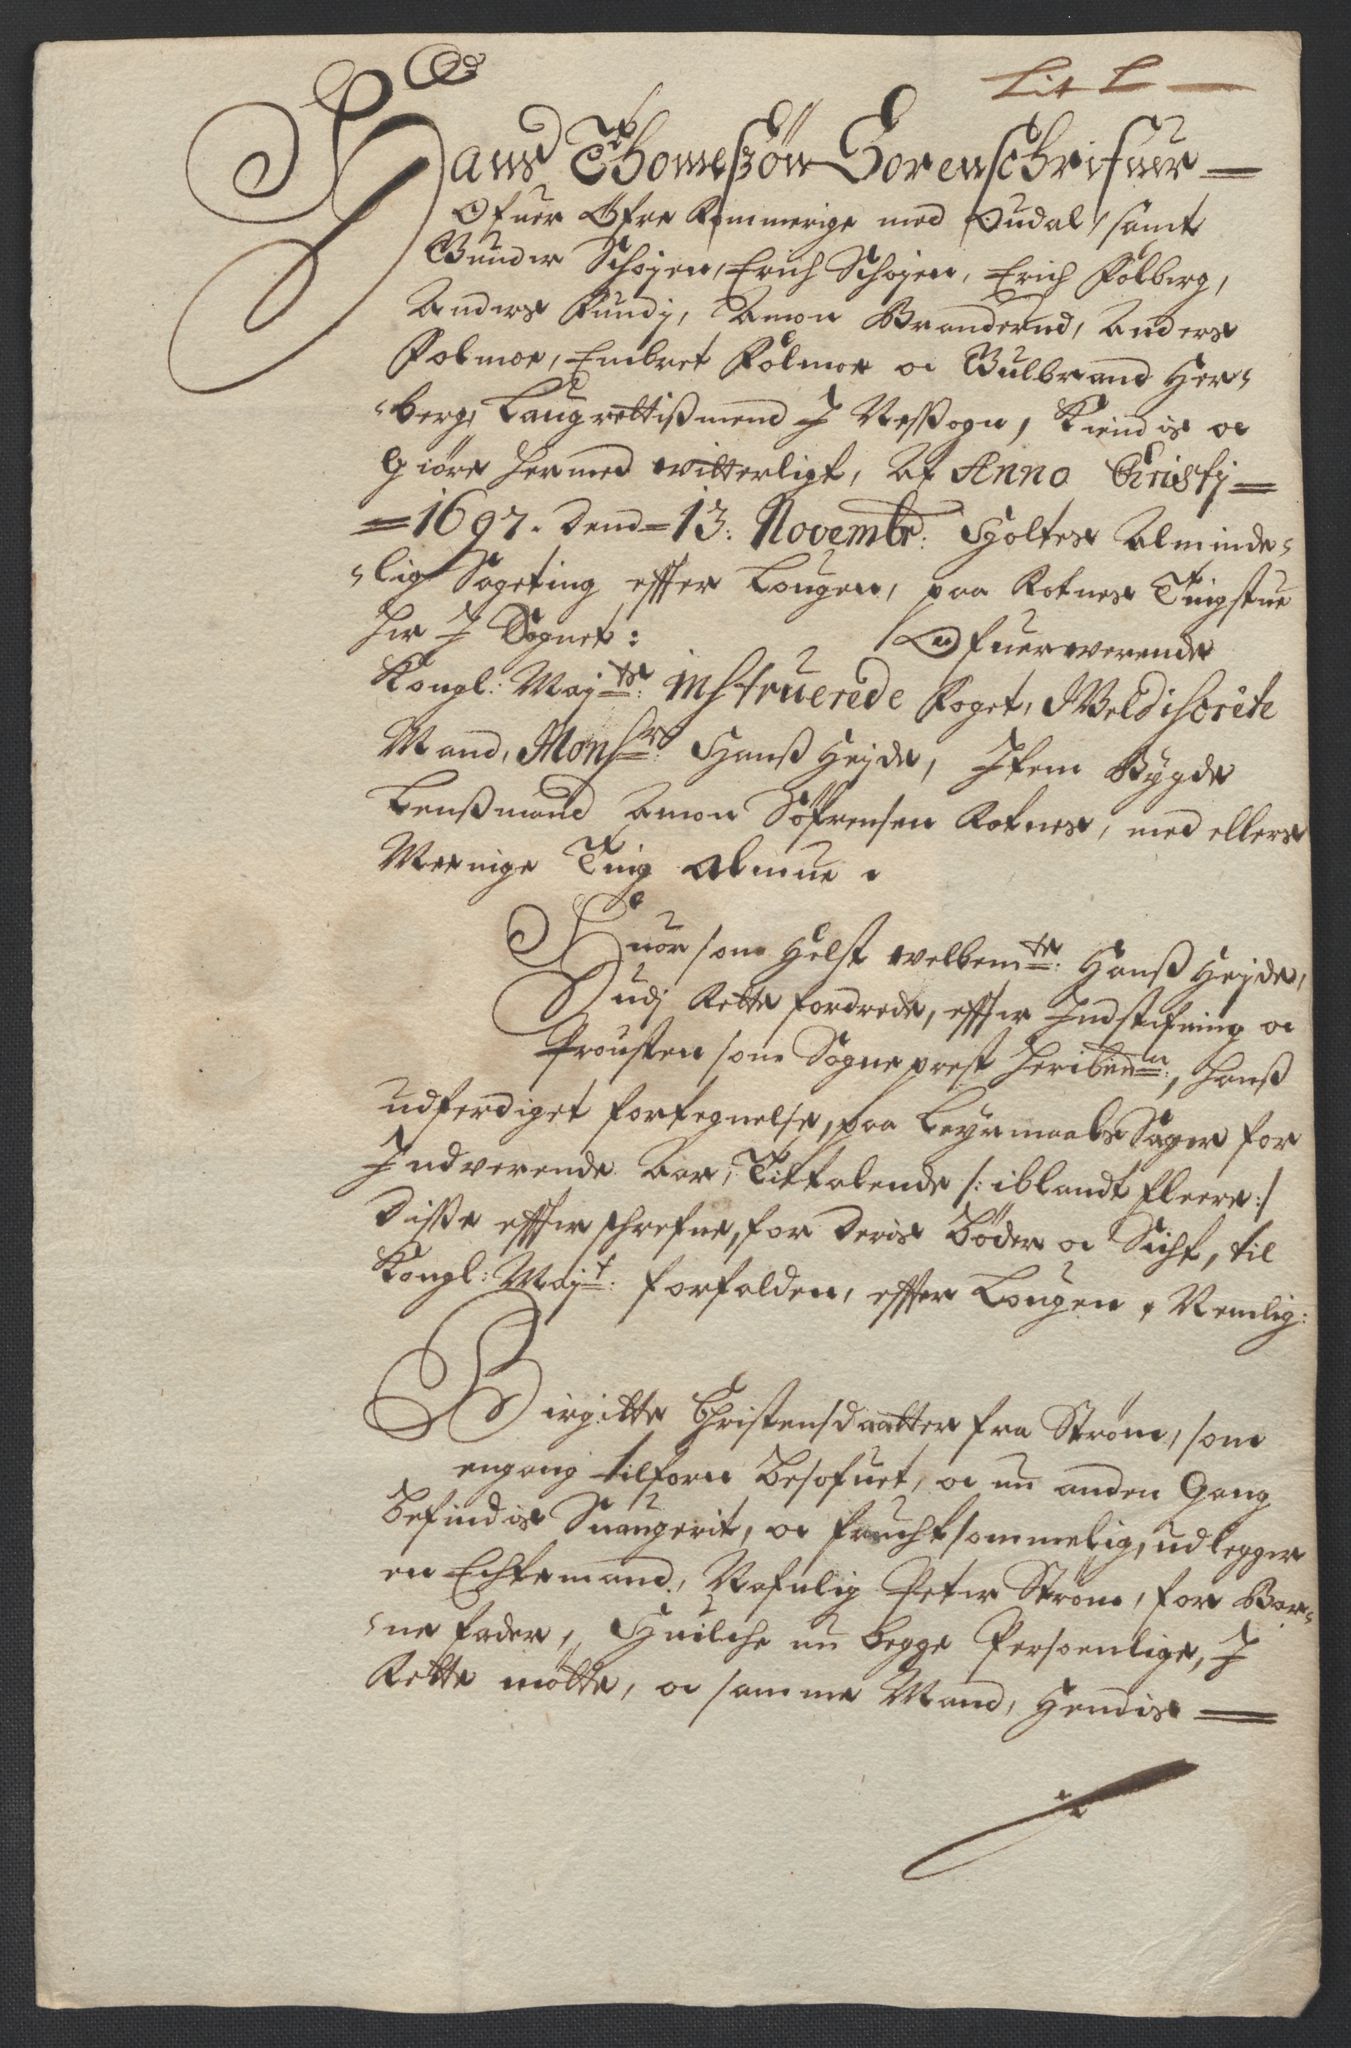 Lit L
Hans Thomeszön Sorenschrifuer
Ofuer Öfre Rommerige med Oudal, samt
Gunder Schøyen, Erich Schøyen, Erich Folberg,
Anders Fundj, Amon Branderud, Anders
Folmoe, Embret Folmoe oc Gulbrand Her-
-berg, Laugrettißmend J Neßsogn, Kiendis oc
Giøre hermed vitterligt, At Anno Christj
1697. dend 13: Novembr: Holtes Alminde-
-lig Sageting effter Lougen, paa Rotnes Tingstue
her J Sognet: Ofuerwerende
Kongl: Maj:ts: instruerede Foget, Weldiscrete
Mand, Mons:r Hanß Heyde, Jtem Bygde
Lenßmand Amon Søfrensen Rotnes, med ellers
Meenige Ting Almue.
Huor som Helst welbem:te: Hanß Heyde,
Udj Rette fordrede, effter Jndstefning oc
Prousten som Sogneprest heribid:m:, hanß
udferdiget fortegnelse, paa Leyermaals Sager for
Jndverende Aar, Tiltalende /: iblandt fleere:/
disse effterschrefne, for deris Bøder oc Sicht, til
Kongl: Maj:t: forfalden, effter Lougen, Nemlig:
Birgitte Christensdaatter fra Strøm, som
engang tilforn besofuet, oc nu anden Gang
befindis Suangerit, oc fruchtsommelig, udlegger
en Echtemand, Nafnlig Peter Strøm, for Bar-
-nefader, Huilche nu begge Persoenlige, J
Rette møtte, oc samme Mand, Hendis